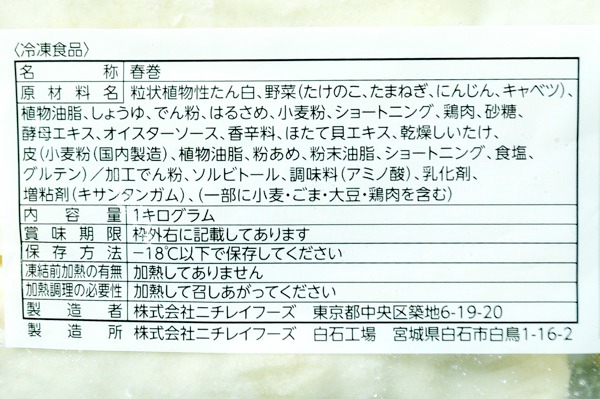 〈冷凍食品〉
名称 春巻
原材料名 粒状植物性たん白、野菜(たけのこ、たまねぎ、にんじん、キャベツ)、
植物油脂、しょうゆ、でん粉、はるさめ、小麦粉、ショートニング、鶏肉、砂糖、
酵母エキス、オイスターソース、香辛料、ほたて貝エキス、乾燥しいたけ、
皮(小麦粉(国内製造)、植物油脂、粉あめ、粉末油脂、ショートニング、食塩、
グルテン)／加工でん粉、ソルビトール、調味料(アミノ酸)、乳化剤、
増粘剤(キサンタンガム)、(一部に小麦・ごま・大豆・鶏肉を含む)
内容量 1キログラム
賞味期限 枠外右に記載してあります
保存方法 −18℃以下で保存してください
凍結前加熱の有無 加熱してありません
加熱調理の必要性 加熱して召しあがってください
製造者 株式会社ニチレイフーズ 東京都中央区築地6-19-20
製造所 株式会社ニチレイフーズ 白石工場 宮城県白石市白鳥1-16-2